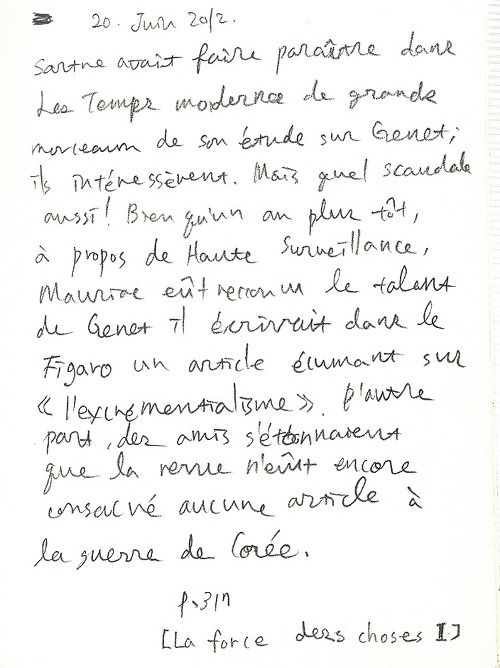 20. Juin 2012.
Sartre avait faire paraître dans
Les Temps modernes de grands
morceaux de son étude sur Genet;
ils intéressèrent. Mais quel scandale
aussi! Bien qu'un an plus tôt,
à propos de Haute Surveillance,
Mauriac eût reconnu le talent
de Genet il écrivait dans le
Figaro un article écumant sur
« l'excrémentialisme ». D'autre
part, des amis s'étonnaient
que la revue n'eût encore
consacré aucune article à
la guerre de Corée.
[La force des choses I]